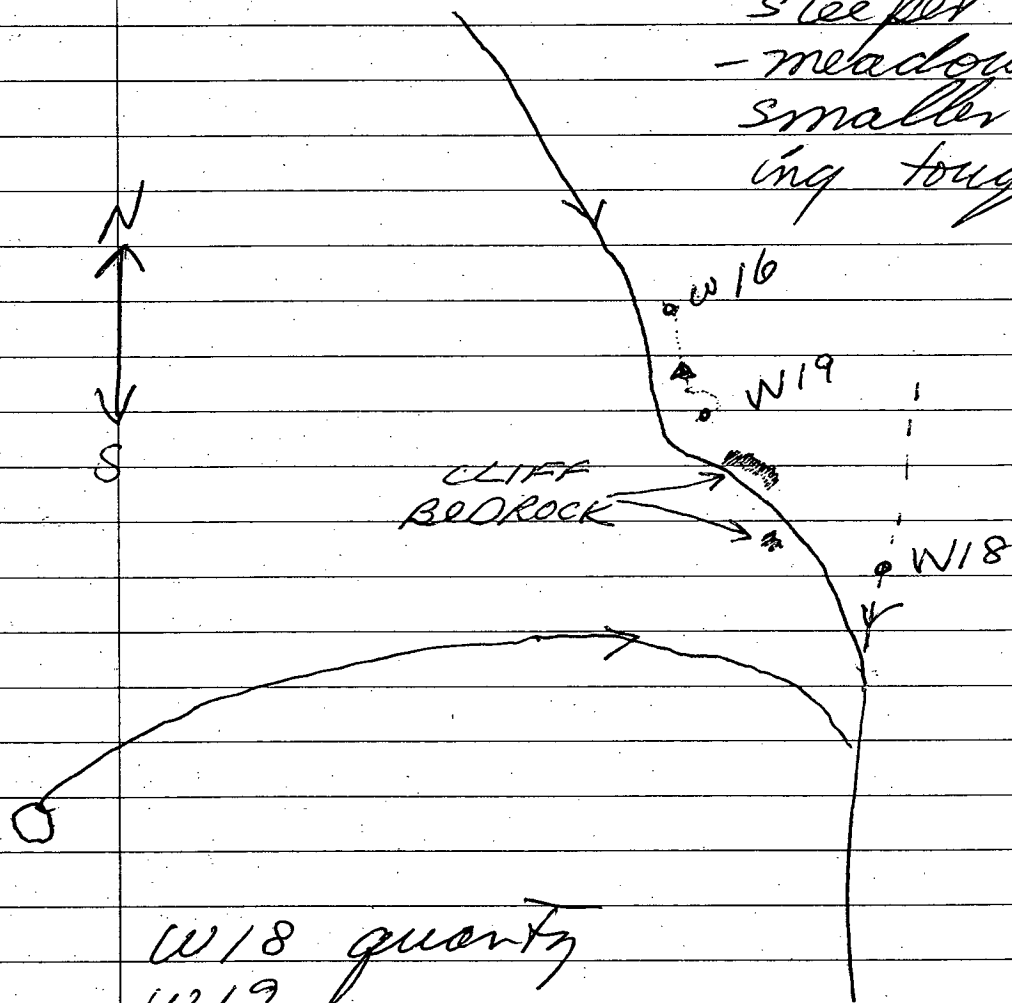 steeper
- meadow
smaller
ing toug
N
W16
W19
S
CLIFF
BEDROCK
W18
W18 quartz
W19